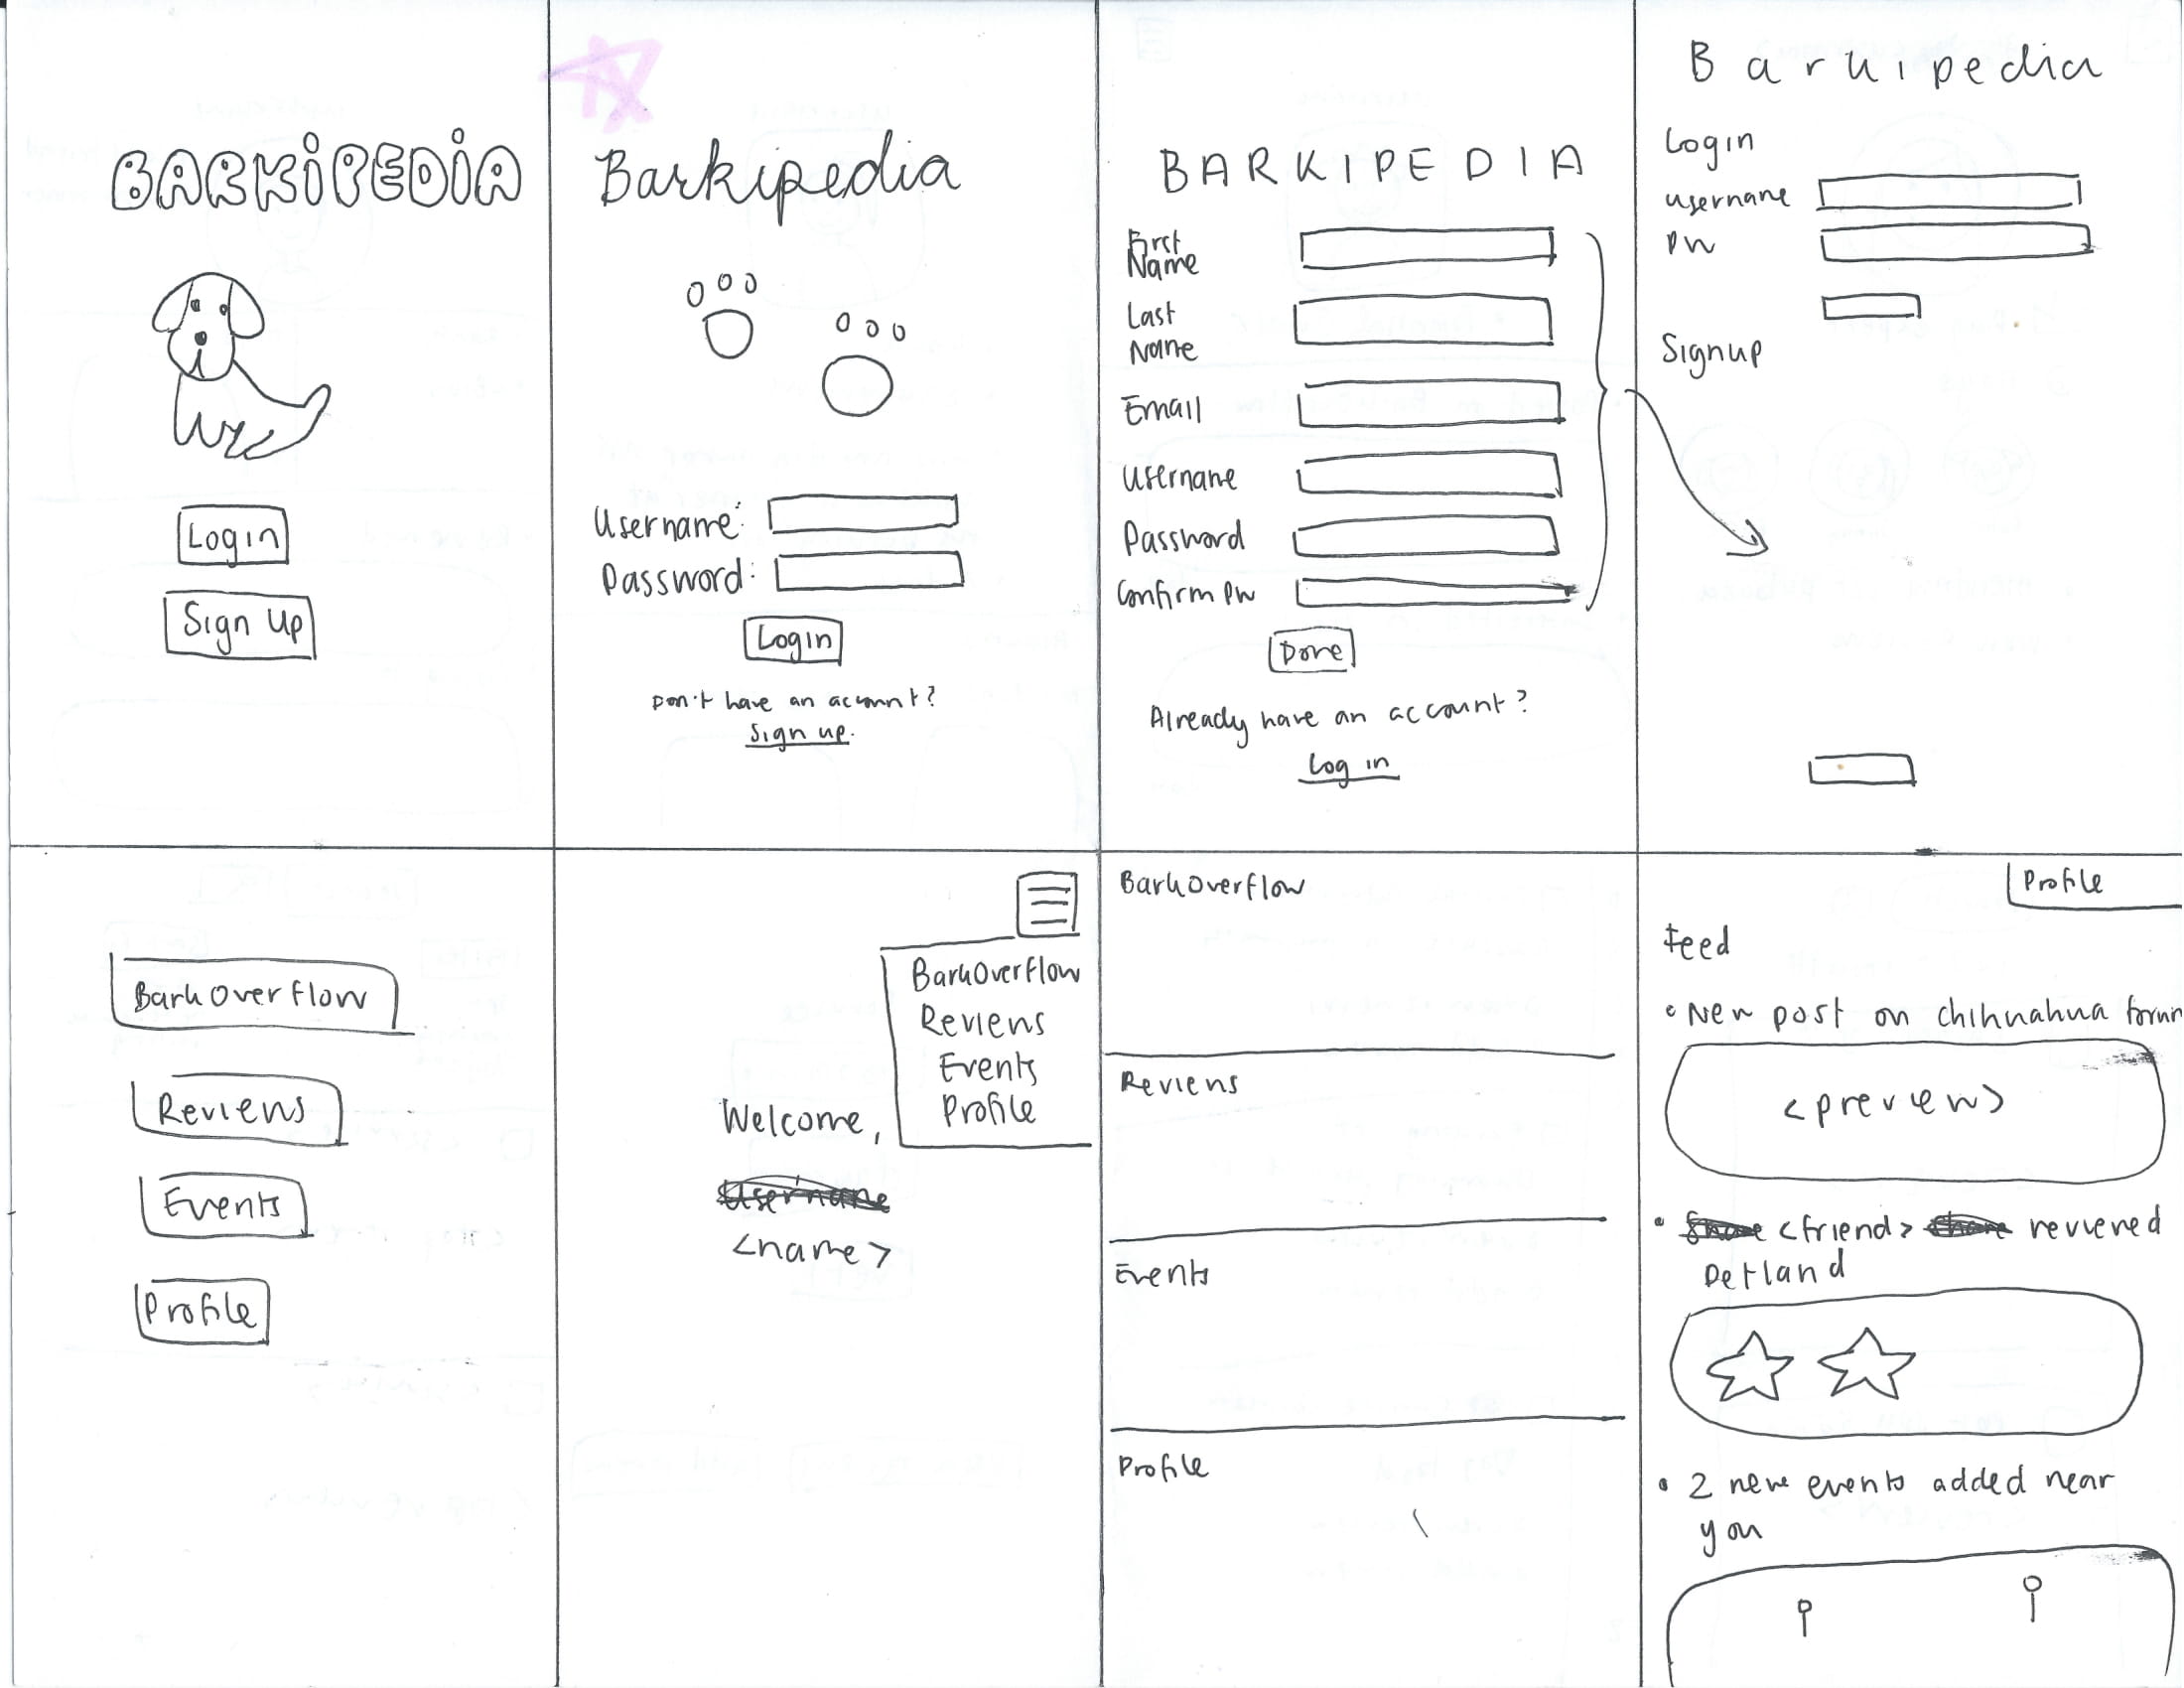 BARKiPEDiA
Login
Sign Up
Barkipedia
Username:
Password:
Login
Don't have an account?
Sign up.
BARKIPEDIA
First
Name
Last
Name
Email
Username
Password
Confirm PW
Done
Already have an account?
Log in
Barkipedia
Login
username
PW
Signup
BarkOverflow
Reviews
Events
Profile
BarkOverflow
Reviews
Events
Profile
Welcome,
Username
<name>
BarkOverflow
Reviews
Events
Profile
Profile
Feed
• New post on chihuahua forum
<preview>
• <friend> reviewed
Petland
• 2 new events added near
you